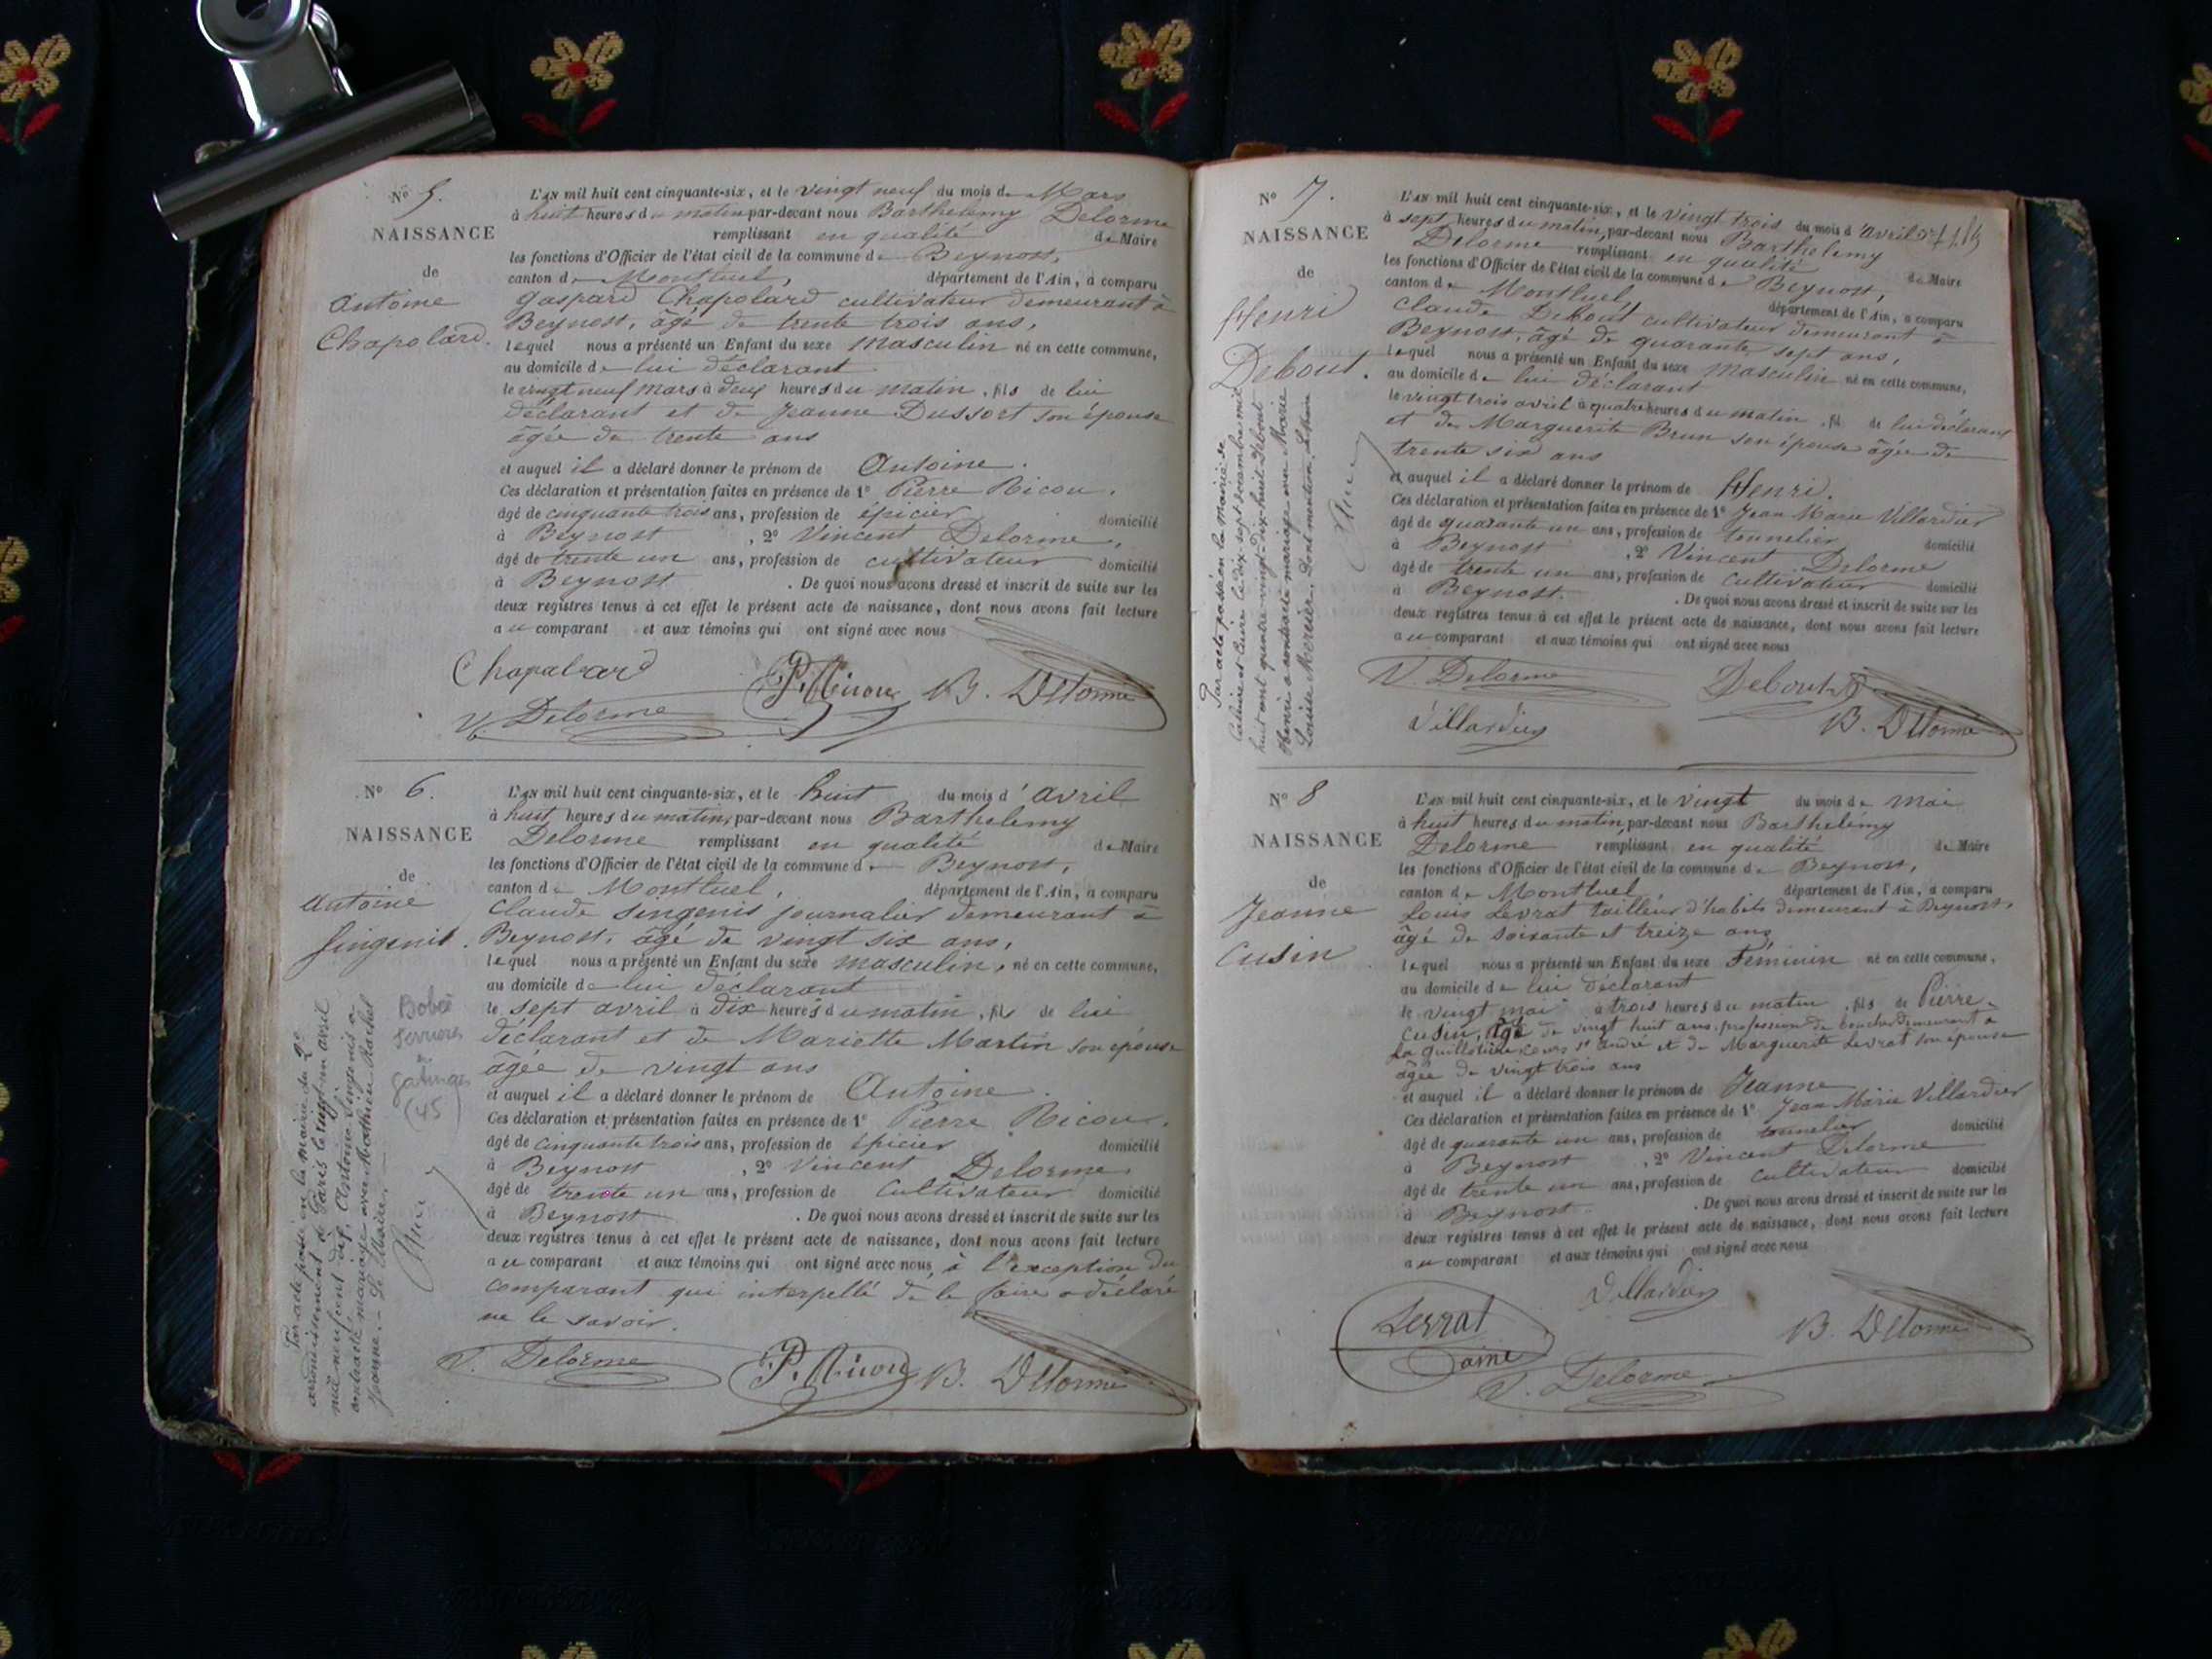 No 5.
NAISSANCE
de
Antoine
Chapolard.
L'AN mil huit cent cinquante-six, et le vingt neuf du mois de Mars
à huit heures du matin par-devant nous Barthelemy Delorme
remplissant en qualité de Maire
les fonctions d'Officier de l'état civil de la commune de Beynost,
canton de Montluel, département de l'Ain, a comparu
Gaspard Chapolard cultivateur demeurant à
Beynost, âgé de trente trois ans,
lequel nous a présenté un Enfant du sexe masculin né en cette commune,
au domicile de lui déclarant
le vingt neuf mars à deux heures du matin, fils de lui
déclarant et de Jeanne Dussort son épouse
âgée de trente ans
et auquel il a déclaré donner le prénom de Antoine.
Ces déclaration et présentation faites en présence de 1° Pierre Nicou,
âgé de cinquante trois ans, profession de épicier domicilié
à Beynost, 2° Vincent Delorme,
âgé de trente un ans, profession de cultivateur domicilié
à Beynost. De quoi nous avons dressé et inscrit de suite sur les
deux registres tenus à cet effet le présent acte de naissance, dont nous avons fait lecture
au comparant et aux témoins qui ont signé avec nous
Chapalard
P. Nicou B. Delorme
V. Delorme
No 6.
NAISSANCE
de
Antoine
Singenis.
L'AN mil huit cent cinquante-six, et le huit du mois d'avril
à huit heures du matin, par-devant nous Barthelemy
Delorme remplissant en qualité de Maire
les fonctions d'Officier de l'état civil de la commune de Beynost,
canton de Montluel, département de l'Ain, a comparu
Claude Singenis journalier demeurant à
Beynost, âgé de vingt six ans,
lequel nous a présenté un Enfant du sexe masculin, né en cette commune,
au domicile de lui déclarant
le sept avril à dix heures du matin, fils de lui
déclarant et de Mariette Martin son épouse
âgée de vingt ans
et auquel il a déclaré donner le prénom de Antoine.
Ces déclaration et présentation faites en présence de 1° Pierre Nicou,
âgé de cinquante trois ans, profession de épicier domicilié
à Beynost, 2° Vincent Delorme
âgé de trente un ans, profession de cultivateur domicilié
à Beynost. De quoi nous avons dressé et inscrit de suite sur les
deux registres tenus à cet effet le présent acte de naissance, dont nous avons fait lecture
au comparant et aux témoins qui ont signé avec nous, à l'exception du
comparant qui interpellé de le faire a déclaré
ne le savoir.
V. Delorme P. Nicou B. Delorme
Par acte passé en la mairie du 2e
arrondissement de Paris le vingt un avril
mil neuf cent dix, Antoine Singenis a
contracté mariage avec Mathieu Rachel
(45
No 7.
NAISSANCE
de
Henri
Debout.
L'AN mil huit cent cinquante-six, et le vingt trois du mois d'avril
à sept heures du matin, par-devant nous Barthelemy
Delorme remplissant en qualité de Maire
les fonctions d'Officier de l'état civil de la commune de Beynost,
canton de Montluel, département de l'Ain, a comparu
Claude Debout cultivateur demeurant à
Beynost, âgé de quarante sept ans,
lequel nous a présenté un Enfant du sexe masculin né en cette commune,
au domicile de lui déclarant
le vingt trois avril à quatre heures du matin, fil de lui déclarant
et de Marguerite Brun son épouse âgée de
trente six ans
et auquel il a déclaré donner le prénom de Henri.
Ces déclaration et présentation faites en présence de 1° Jean Marie Villardier
âgé de quarante un ans, profession de tonnelier domicilié
à Beynost, 2° Vincent Delorme
âgé de trente un ans, profession de cultivateur domicilié
à Beynost. De quoi nous avons dressé et inscrit de suite sur les
deux registres tenus à cet effet le présent acte de naissance, dont nous avons fait lecture
au comparant et aux témoins qui ont signé avec nous
V. Delorme Debout
Villardier B. Delorme
Par acte passé en la mairie de
Caluire et Cuire le dix-sept décembre mil
huit cent quatre-vingt-dix-huit Debout
Henri a contracté mariage avec Marie
Louise Mercier. Dont mention.
No 8
NAISSANCE
de
Jeanne
Cusin
L'AN mil huit cent cinquante-six, et le vingt du mois de mai
à huit heures du matin, par-devant nous Barthélemy
Delorme remplissant en qualité de Maire
les fonctions d'Officier de l'état civil de la commune de Beynost,
canton de Montluel, département de l'Ain, a comparu
Louis Levrat tailleur d'habits demeurant à Beynost,
âgé de soixante et treize ans
lequel nous a présenté un Enfant du sexe Féminin né en cette commune,
au domicile de lui déclarant
le vingt mai à trois heures du matin, fils de Pierre
Cusin, âgé de vingt huit ans, profession de boucher demeurant à
la Guillotière cours St André et de Marguerite Levrat son épouse
âgée de vingt trois ans
et auquel il a déclaré donner le prénom de Jeanne
Ces déclaration et présentation faites en présence de 1° Jean Marie Villardier
âgé de quarante un ans, profession de tonnelier domicilié
à Beynost, 2° Vincent Delorme
âgé de trente un ans, profession de cultivateur domicilié
à Beynost. De quoi nous avons dressé et inscrit de suite sur les
deux registres tenus à cet effet le présent acte de naissance, dont nous avons fait lecture
au comparant et aux témoins qui ont signé avec nous
Villardier
Levrat
ainé B. Delorme
V. Delorme